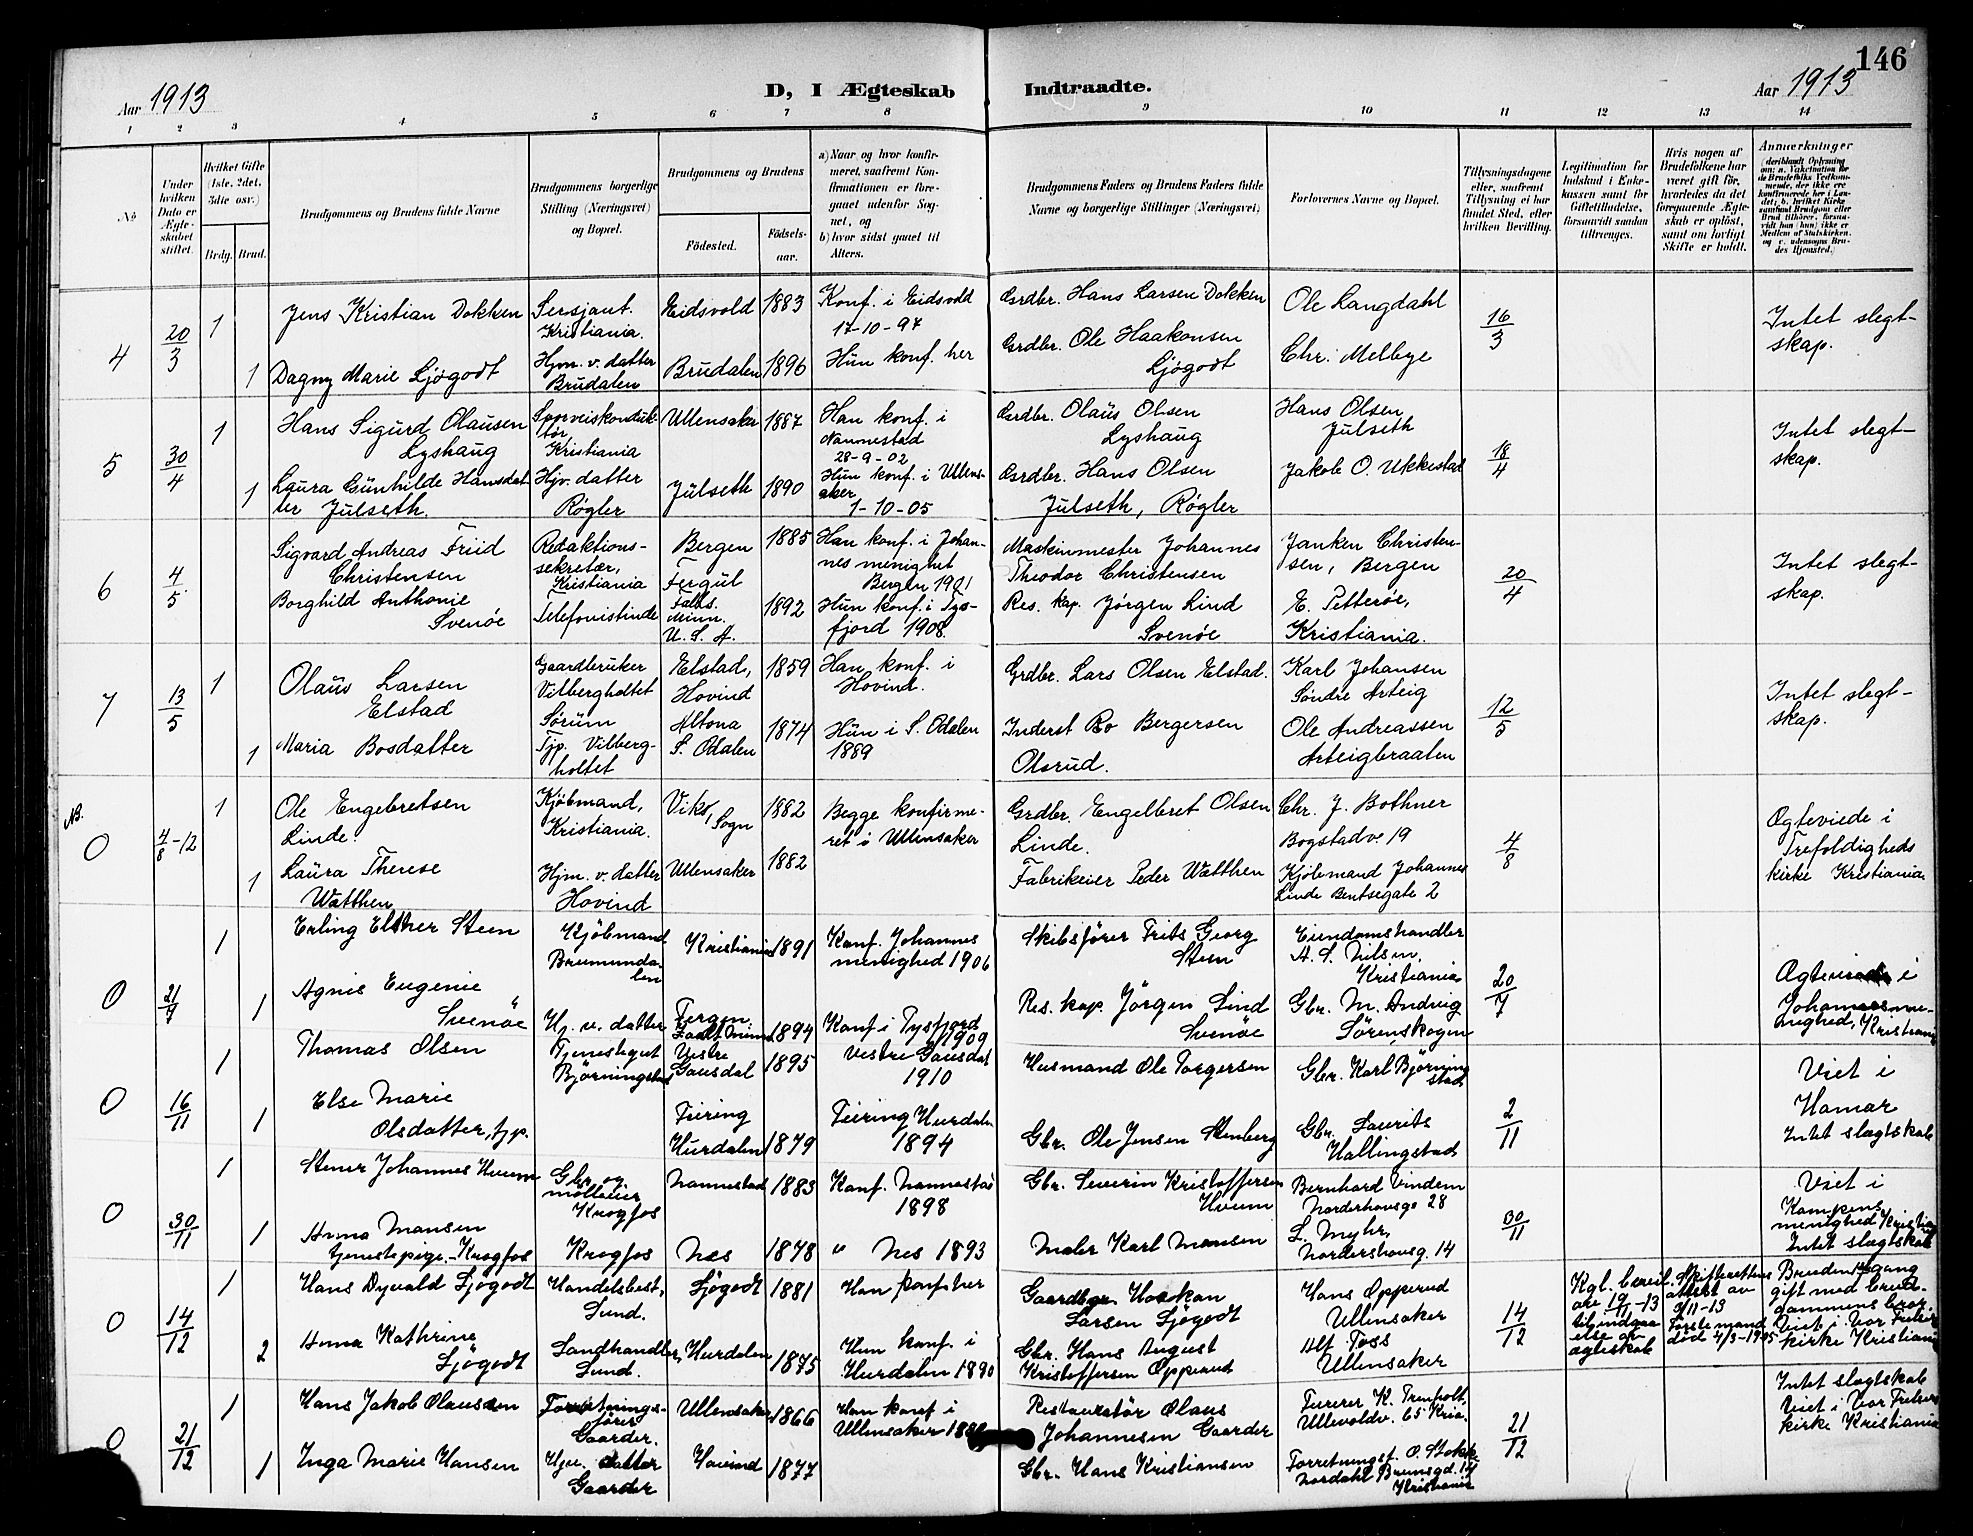 146
Aar 1913
D, I Ægteskab Indtraadte.
Aar 1913
1 2 3 4 5 6 7 8 9 10 11 12 13 14
No
Under hvilken Dato er Ægteskabet stiftet.
Hvilket Gifte (1ste, 2det, 3die osv.)
Brdg. Brud.
Brudgommens og Brudens fulde Navne
Brudgommens borgerlige Stilling (Næringsvei) og Bopæl.
Brudgommens og Brudens
Fødested. Fødselsaar.
a) Naar og hvor konfirmeret, saafremt Konfirmationen er foregaaet udenfor Sognet, og
b) hvor sidst gaaet til Alters.
Brudgommens Faders og Brudens Faders fulde Navne og borgerlige Stillinger (Næringsvei)
Forlovernes Navne og Bopæl.
Tillysningsdagene eller, saafremt Tillysning ei har fundet Sted, efter hvilken Bevilling.
Legitimation for Indskud i Enkekassen samt for Giftetilladelse, forsaavidt saadan tiltrænges.
Hvis nogen af Brudefolkene har været gift før, hvorledes da det foregaaende Ægteskab er opløst, samt om lovligt Skifte er holdt.
Anmærkninger
4 20/3 1 Jens Kristian Dokken Sersjant. Kristiania. Eidsvold 1883 Konf. i Eidsvold 17-10-97 Grdbr. Hans Larsen Dokken Ole Langdahl 16/3 Intet slegtskap.
1 Dagny Marie Ljøgodt Hjm. v. datter Brudalen Brudalen 1896 Hun konf. her Grdbr. Ole Haakonsen Ljøgodt Chr. Melbye
5 30/4 1 Hans Sigurd Olausen Lyshaug Sporveiskonduktør, Kristiania Ullensaker 1887 Han konf. i Nannestad 28-9-02 Grdbr. Olaus Olsen Lyshaug Hans Olsen Julseth 18/4 Intet slegtskap.
1 Laura Gunhilde Hansdatter Julseth. Hjv. datter Røgler Julseth 1890 Hun konf. i Ullensaker 1-10-05 Grdbr. Hans Olsen Julseth, Røgler Jakob O. Ukkestad
6 4/5 Sigvard Andreas Friid Christensen Redaktionssekretær, Kristiania Bergen 1885 Han konf. i Johannes menighet Bergen 1901 Maskinmester Johannes Theodor Christensen Janken Christensen, Bergen 20/4 Intet slegtskap.
Borghild Anthonie Svenøe Telefonistinde Fergus Falls. Minn. U. S. A. 1892 Hun konf. i Tysfjord 1908. Res. kap. Jørgen Lind Svenøe E. Petterøe, Kristiania.
7 13/5 1 Olaus Larsen Elstad Gaardbruker Vilbergholtet Sørum Elstad, Hovind 1859 Han konf. i Hovind. Grdbr. Lars Olsen Elstad. Karl Johansen Søndre Arteig 12/5 Intet slegtskap.
1 Maria Bosdatter Tjp. Vilbergholtet Altona S. Odalen 1874 Hun i S. Odalen 1889 Inderst Bo Bergersen Olsrud. Ole Andreassen Arteigbraaten
NB.
0 4/8-12 1 Ole Engebretsen Linde. Kjøbmand, Kristiania. Viks, Sogn 1882 Begge konfirmeret i Ullensaker Grdbr. Engelbret Olsen Linde. Chr. J. Bothner Bogstadv. 19 4/8 Ægteviede i Trefoldigheds kirke Kristiania
1 Laura Therese Watthen Hjm. v. datter Hovind Ullensaker 1882 Fabrikeier Peder Watthen Kjøbmand Johannes Linde Bentsegate 2
0 1 Erling Elsther Steen Kjøbmand Brumundalen Kristiania 1891 Konf. Johannes menighed 1906 Skibsfører Frits Georg Steen Eiendomshandler A. S. Nilsen, Kristiania 20/7 Ægteviede i Johannesmenighed, Kristiania
1 Agnes Eugenie Svenöe Hj. v. datter Fergus Falls Minn. 1894 Konf. i Tysfjord 1909 Res. kap. Jörgen Lind Svenöe Gbr. M. Andvig Sörenskogen
0 16/11 1 Thomas Olsen Tjenestegut Björningstad Vestre Gausdal 1895 Vestre Gausdal 1910 Husmand Ole Torgersen Gbr. Karl Björningstad 2/11 Viet i Hamar Intet slægtskab
1 Else Marie Olsdatter, tjp. Feiring Hurdalen 1879 Feiring Hurdalen 1894 Gbr. Ole Jensen Stenberg Gbr. Laurits Hallingstad
0 30/11 1 Stener Johannes Hveem Gbr. og mølleeier Krogfos Nannestad 1883 Konf. Nannestad 1898 Gbr. Severin Kristoffersen Hveem Bernhard Vindem Norderhovsg. 28 30/11 Viet i Kampens menighed Kristia Intet slægtskab
1 Anna Mansen tjenestepige - Krogfos Krogfos Nes 1878 " Nes 1893 Maler Karl Monsen L. Myhr, Norderhovsg. 14
0 14/12 1 Hans Dyvald Ljøgodt Handelsbest. Lund. Ljøgodt 1881 Han konf. her Gaardbgr. Haakan Larsen Ljøgodt Hans Opperud Ullensaker 14/12 Kgl. bevil. av 19/11-13 til indgaaelse av ægteskab Skifterettens attest av 9/11-13 Første mand död 4/3-1905 Bruden 1 gang gift med brudgommens bror. Viet i Vor Frelser kirke Kristiania
2 Anna Kathrine Ljøgodt Landhandler, Lund. Hurdalen 1875 Hun konf. i Hurdalen 1890 Gbr. Hans August Kristoffersen Opperud Alf Foss Ullensaker
0 21/12 1 Hans Jakob Olaussen Forretningsfører Gaarder. Ullensaker 1866 Han konf. i Ullensaker Restauratør Olaus Johannesen Gaarder Furerer K. Tremholt, Ullevoldv. 65 Kria. 21/12 Intet slægtskab Viet i Vor Frelsers kirke Kristiania
1 Inga Marie Hansen Hjv. datter Gaarder Hovind 1877 Gbr. Hans Kristiansen Forretningsf. O. Stokke Nordahl Brunsgd. 14 Kristiania